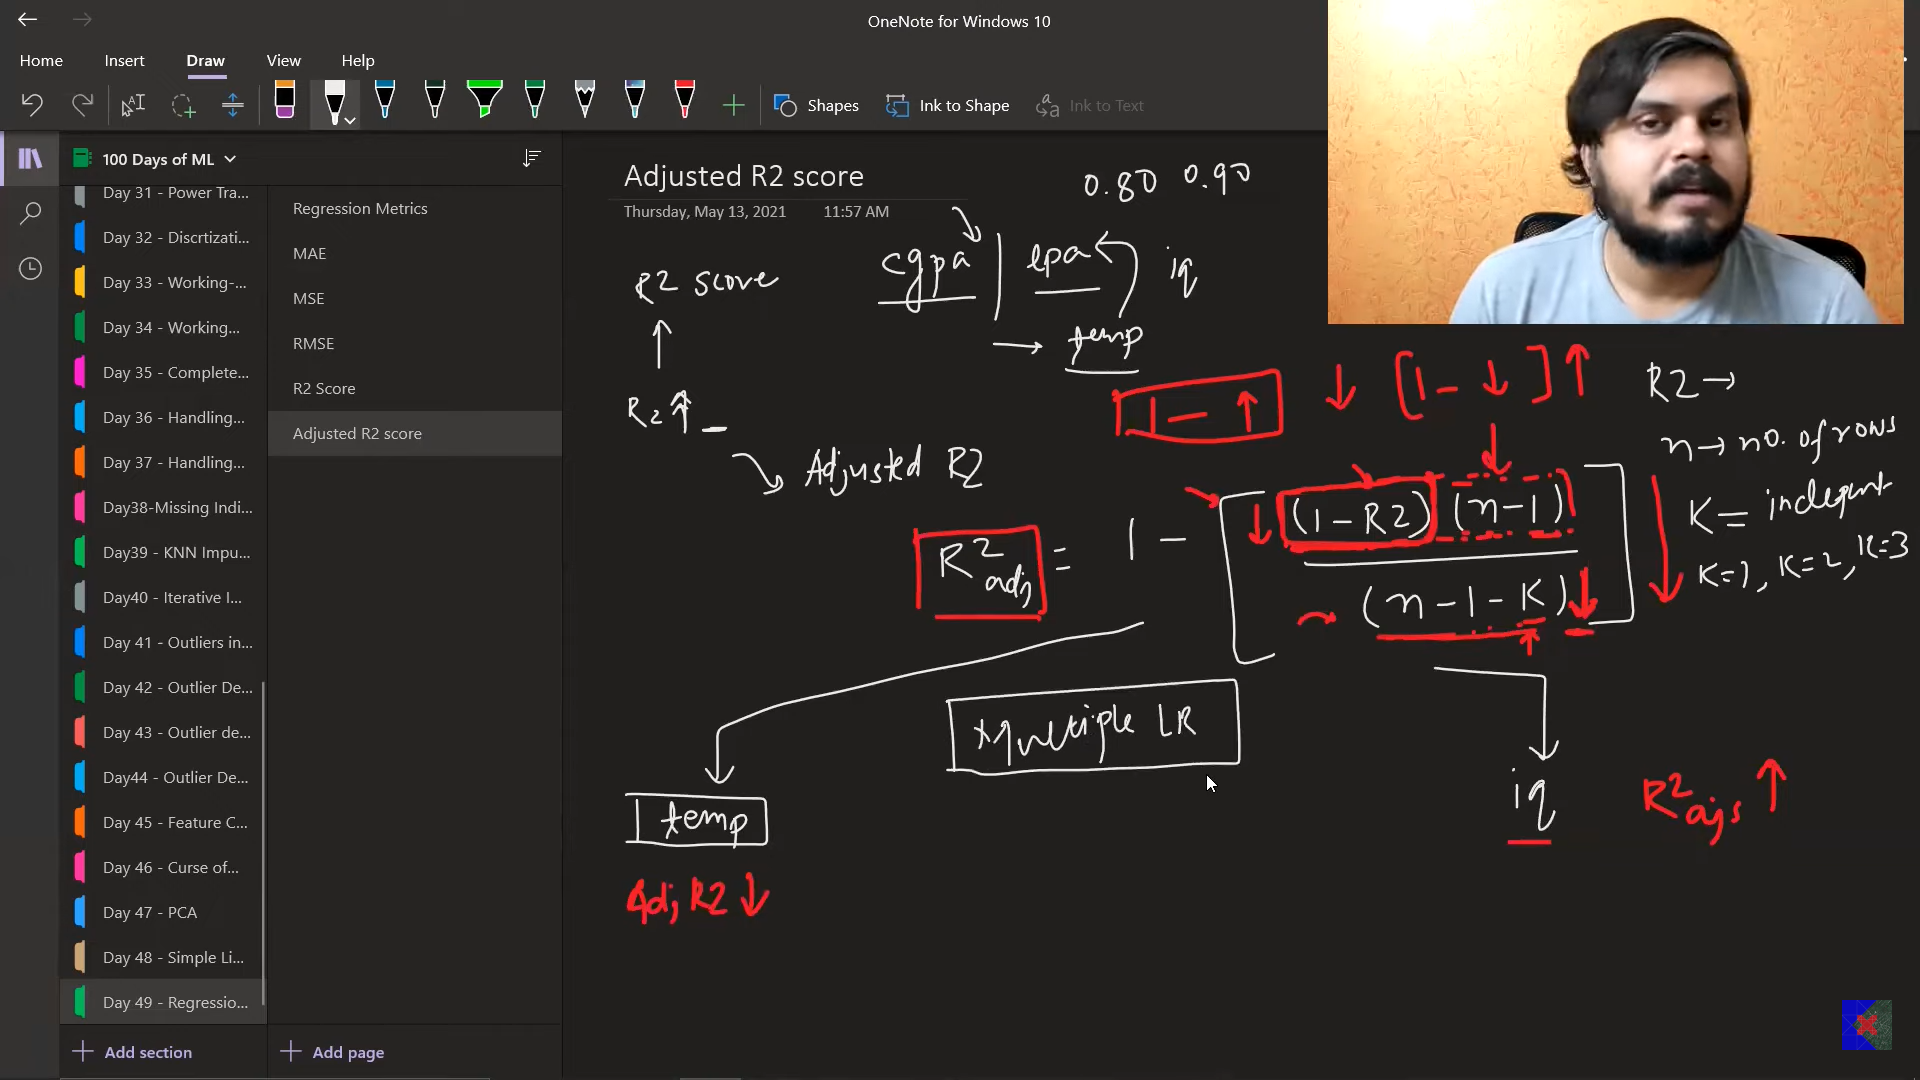 OneNote for Windows 10
Home Insert Draw View Help
Shapes Ink to Shape Ink to Text
100 Days of ML
Day 31 - Power Tra...
Day 32 - Discrtizati...
Day 33 - Working-...
Day 34 - Working...
Day 35 - Complete...
Day 36 - Handling...
Day 37 - Handling...
Day38-Missing Indi...
Day39 - KNN Impu...
Day40 - Iterative I...
Day 41 - Outliers in...
Day 42 - Outlier De...
Day 43 - Outlier de...
Day44 - Outlier De...
Day 45 - Feature C...
Day 46 - Curse of...
Day 47 - PCA
Day 48 - Simple Li...
Day 49 - Regressio...
Add section
Regression Metrics
MAE
MSE
RMSE
R2 Score
Adjusted R2 score
Add page
Adjusted R2 score
Thursday, May 13, 2021 11:57 AM
0.80 0.90
cgpa | lpa iq
→ temp
R2 score
↑
R2 ↑
Adjusted R2
1 - ↑ ↓ [1 - ↓] ↑
R2 →
n → no. of rows
K =
K=1, K=2, K=3
R²adj = 1 - [(1-R2)(n-1)
(n-1-K)]
multiple LR
temp
Adj R2 ↓
iq R²ajs ↑